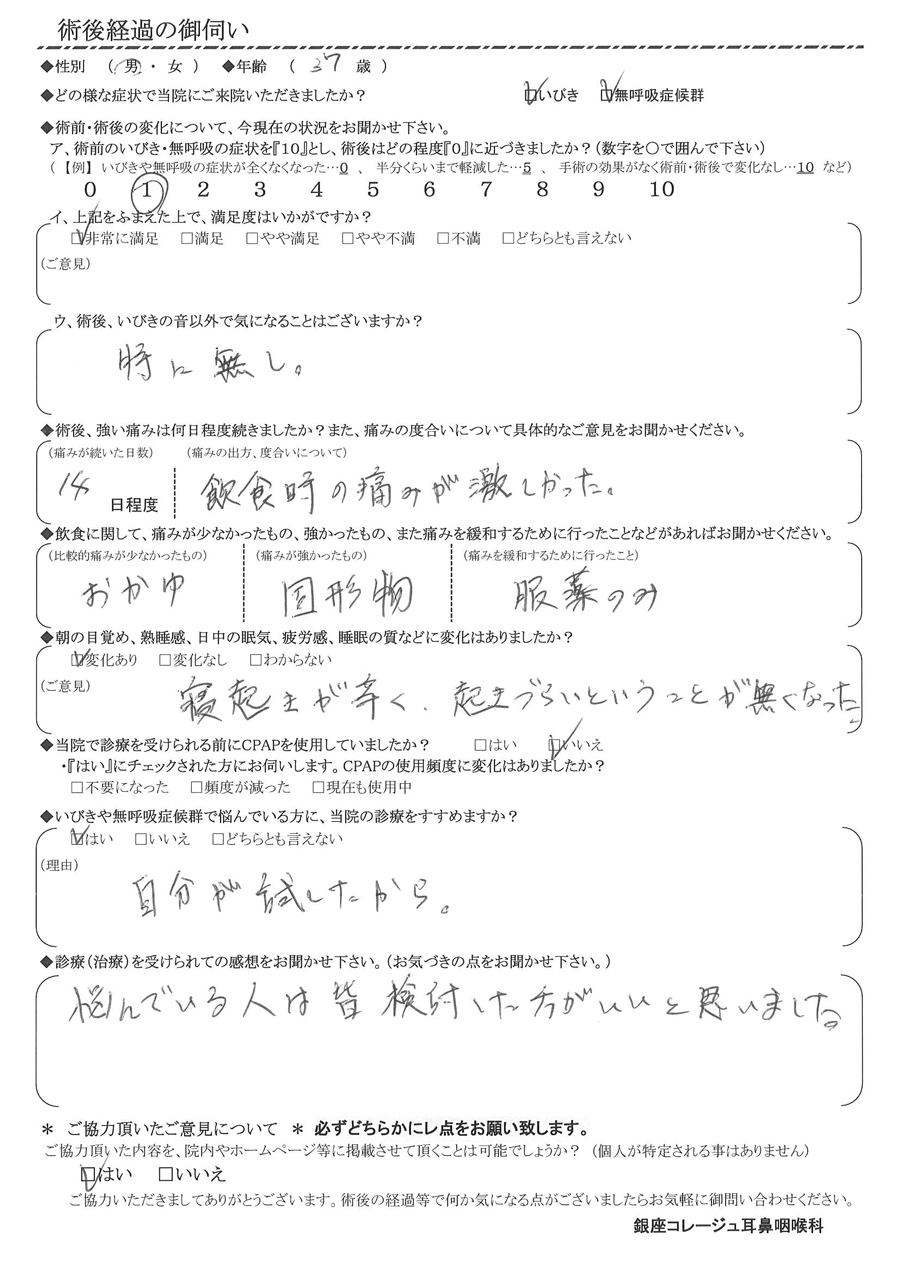 術後経過の御伺い
◆性別 （ 男 ・ 女 ） ◆年齢 （ 37 歳 ）
◆どの様な症状で当院にご来院いただきましたか？ ☑いびき ☑無呼吸症候群
◆術前・術後の変化について、今現在の状況をお聞かせ下さい。
ア、術前のいびき・無呼吸の症状を『10』とし、術後はどの程度『0』に近づきましたか？（数字を○で囲んで下さい）
（ 【例】 いびきや無呼吸の症状が全くなくなった…0 、 半分くらいまで軽減した…5 、 手術の効果がなく術前・術後で変化なし…10 など）
0 1 2 3 4 5 6 7 8 9 10
イ、上記をふまえた上で、満足度はいかがですか？
☑非常に満足 □満足 □やや満足 □やや不満 □不満 □どちらとも言えない
（ご意見）
ウ、術後、いびきの音以外で気になることはございますか？
時に無し。
◆術後、強い痛みは何日程度続きましたか？また、痛みの度合いについて具体的なご意見をお聞かせください。
（痛みが続いた日数） （痛みの出方、度合いについて）
14 日程度 飲食時の痛みが激しかった。
◆飲食に関して、痛みが少なかったもの、強かったもの、また痛みを緩和するために行ったことなどがあればお聞かせください。
（比較的痛みが少なかったもの） （痛みが強かったもの） （痛みを緩和するために行ったこと）
おかゆ 固形物 服薬のみ
◆朝の目覚め、熟睡感、日中の眠気、疲労感、睡眠の質などに変化はありましたか？
☑変化あり □変化なし □わからない
（ご意見）
寝起きが辛く、起きづらいということが無くなった。
◆当院で診療を受けられる前にCPAPを使用していましたか？ □はい ☑いいえ
・『はい』にチェックされた方にお伺いします。CPAPの使用頻度に変化はありましたか？
□不要になった □頻度が減った □現在も使用中
◆いびきや無呼吸症候群で悩んでいる方に、当院の診療をすすめますか？
☑はい □いいえ □どちらとも言えない
（理由）
自分が試したから。
◆診療（治療）を受けられての感想をお聞かせ下さい。（お気づきの点をお聞かせ下さい。）
悩んでいる人は皆検討した方がいいと思いました。
＊ ご協力頂いたご意見について ＊ 必ずどちらかにレ点をお願い致します。
ご協力頂いた内容を、院内やホームページ等に掲載させて頂くことは可能でしょうか？ （個人が特定される事はありません）
☑はい □いいえ
ご協力いただきましてありがとうございます。術後の経過等で何か気になる点がございましたらお気軽に御問い合わせください。
銀座コレージュ耳鼻咽喉科